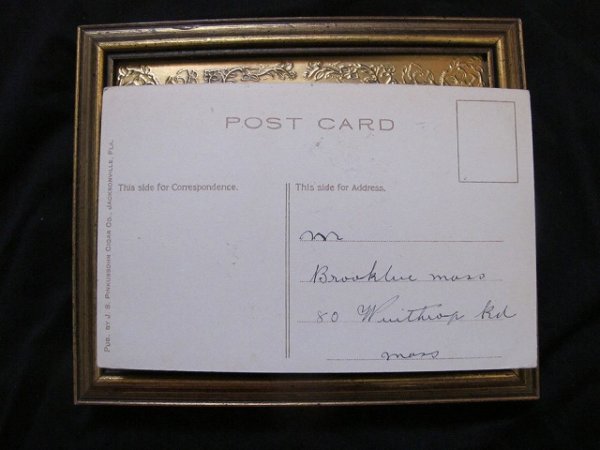 POST CARD
PUB. BY J. S. PINKUSSOHN CIGAR CO. JACKSONVILLE, FLA.
This side for Correspondence.
This side for Address.
m
Brooklue mass
80 Winthrop Rd
mass